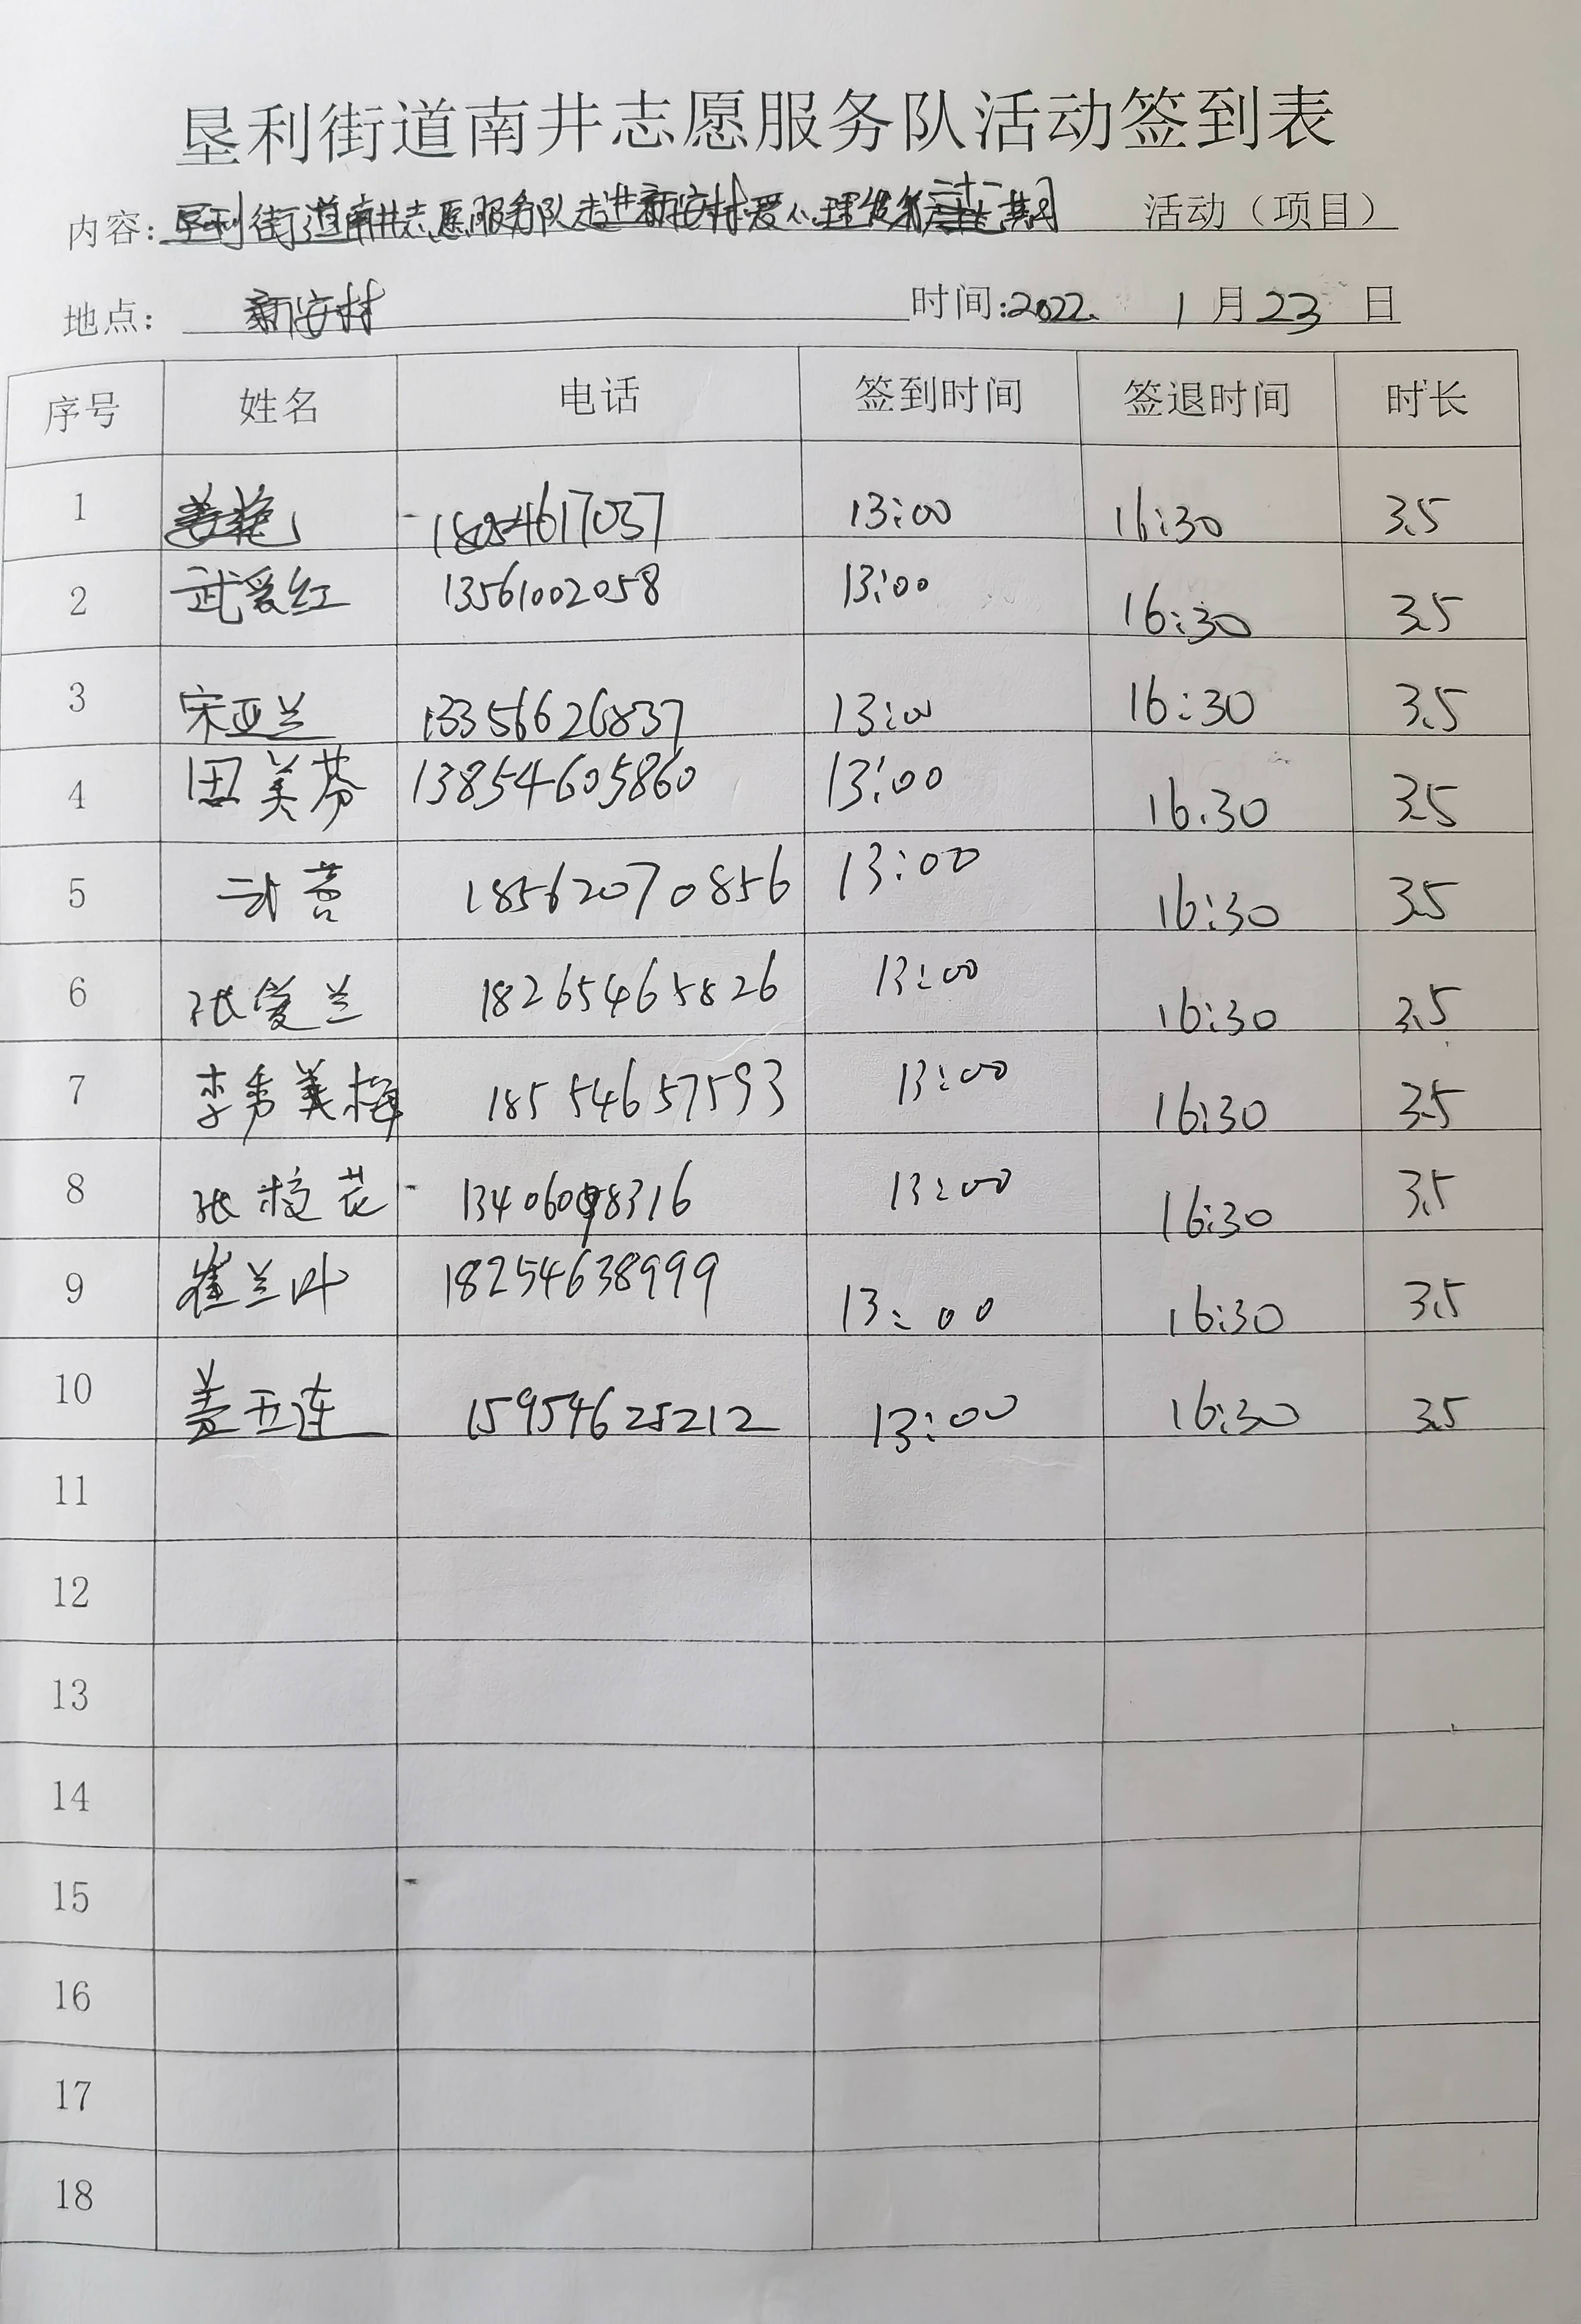 垦利街道南井志愿服务队活动签到表
内容: 垦利街道南井志愿服务队走进新安村爱心理发第二十一期 活动（项目）
地点: 新安村 时间:2022. 1月23日
序号 姓名 电话 签到时间 签退时间 时长
1 姜艳 13:00 16:30 3.5
2 武爱红 13561002058 13:00 16:30 3.5
3 宋亚兰 13356626837 13:00 16:30 3.5
4 田美芬 13854605860 13:00 16.30 3.5
5 18562070856 13:00 16:30 3.5
6 张爱兰 18265465826 13:00 16:30 3.5
7 李秀美梅 18554657593 13:00 16:30 3.5
8 张 花 13406098316 13:00 16:30 3.5
9 崔兰叶 18254638999 13:00 16:30 3.5
10 盖玉连 15954625212 13:00 16:30 3.5
11
12
13
14
15
16
17
18